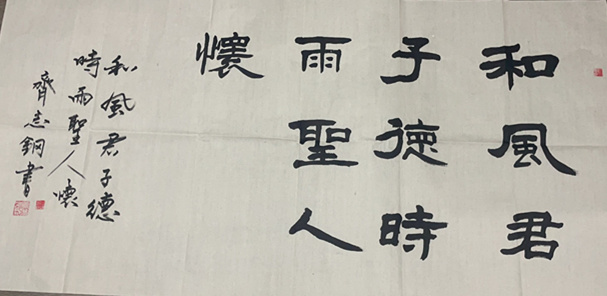 和風君
子德時
雨聖人
懷
和風君子德
時雨聖人懷
齊志鋼書